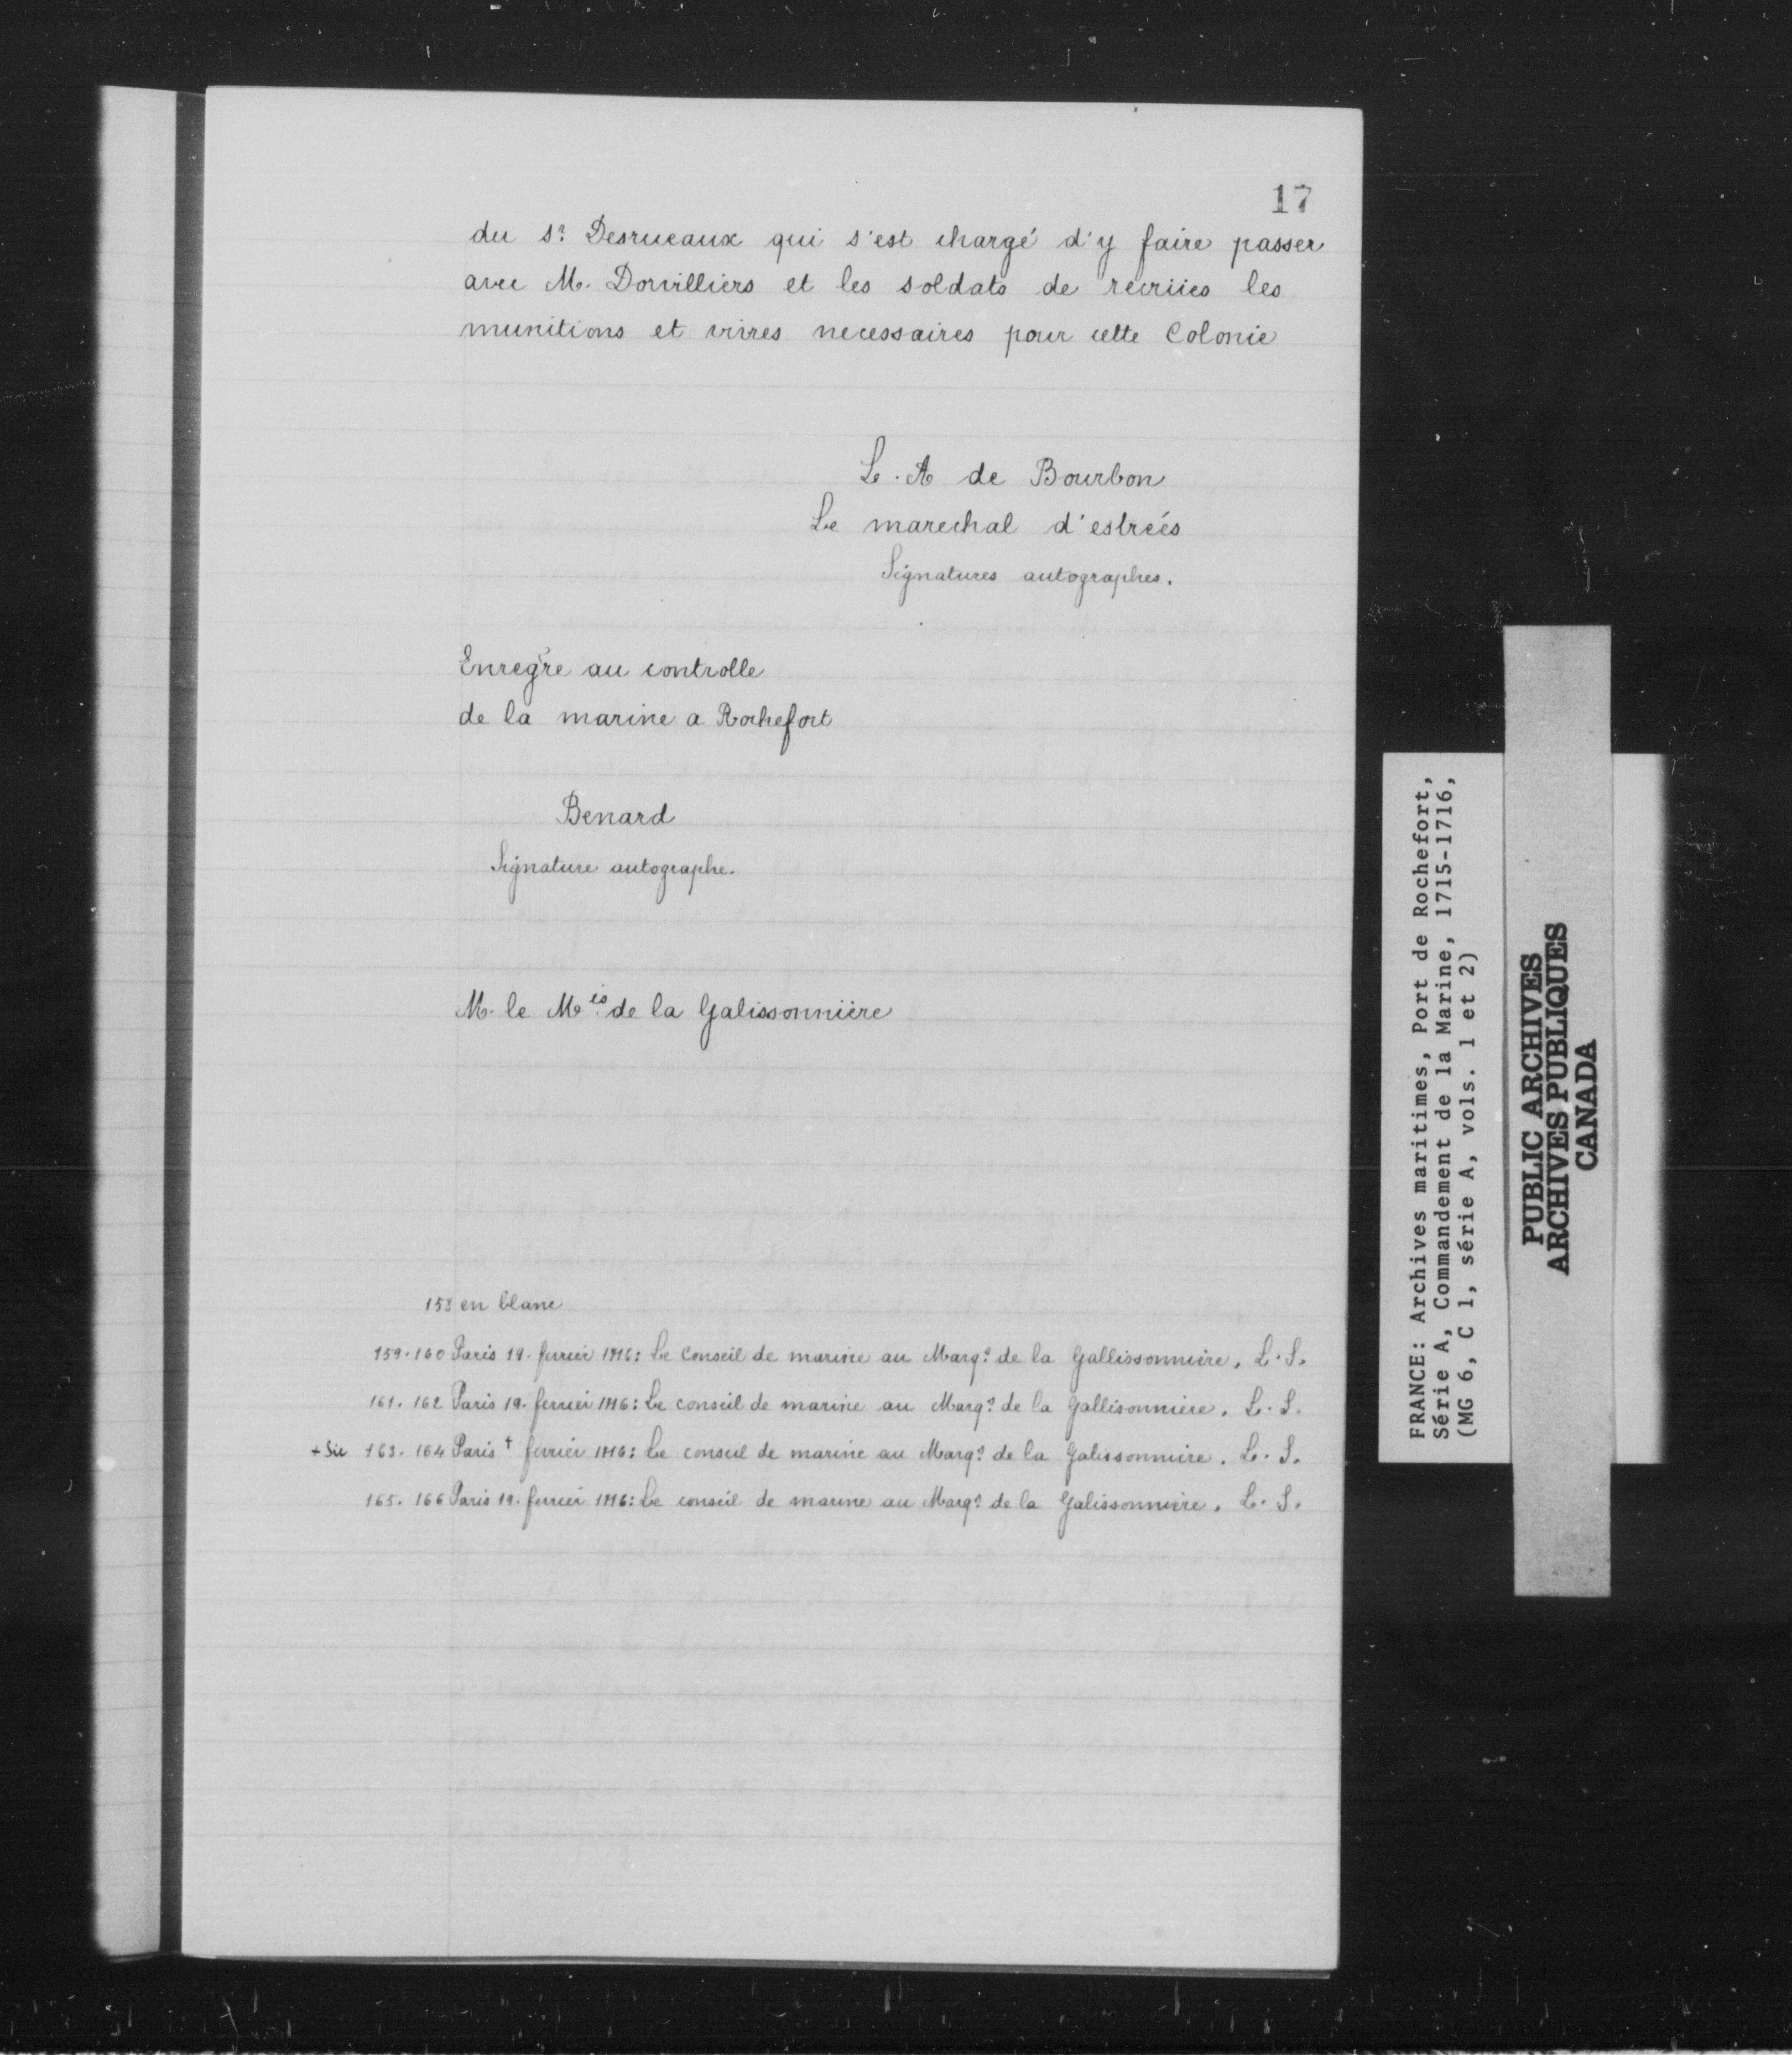 17
du Sr. Desrueaux qui s'est chargé d'y faire passer
avec M. Dorvilliers et les soldats de recriies les
munitions et vivres necessaires pour cette Colonie
L. A de Bourbon
Le marechal d'estrées
Signatures autographes.
Enregre au controlle
de la marine a Rochefort
Benard
Signature autographe.
M. le Mis. de la Galissonnière
158 en blanc
159. 160 Paris 19. fevrier 1716: Le Conseil de marine au Marqs. de la Gallissonniere. L. S.
161. 162 Paris 19. fevrier 1716: Le conseil de marine au Marqs. de la Gallisonniere. L. S.
+ Sic 163. 164 Paris + fevrier 1716: Le conseil de marine au Marqs. de la Galissonniere. L. S.
165. 166 Paris 19. fevrier 1716: Le conseil de marine au Marqs. de la Galissonniere. L. S.
FRANCE: Archives maritimes, Port de Rochefort,
Série A, Commandement de la Marine, 1715-1716,
(MG 6, C 1, série A, vols. 1 et 2)
PUBLIC ARCHIVES
ARCHIVES PUBLIQUES
CANADA